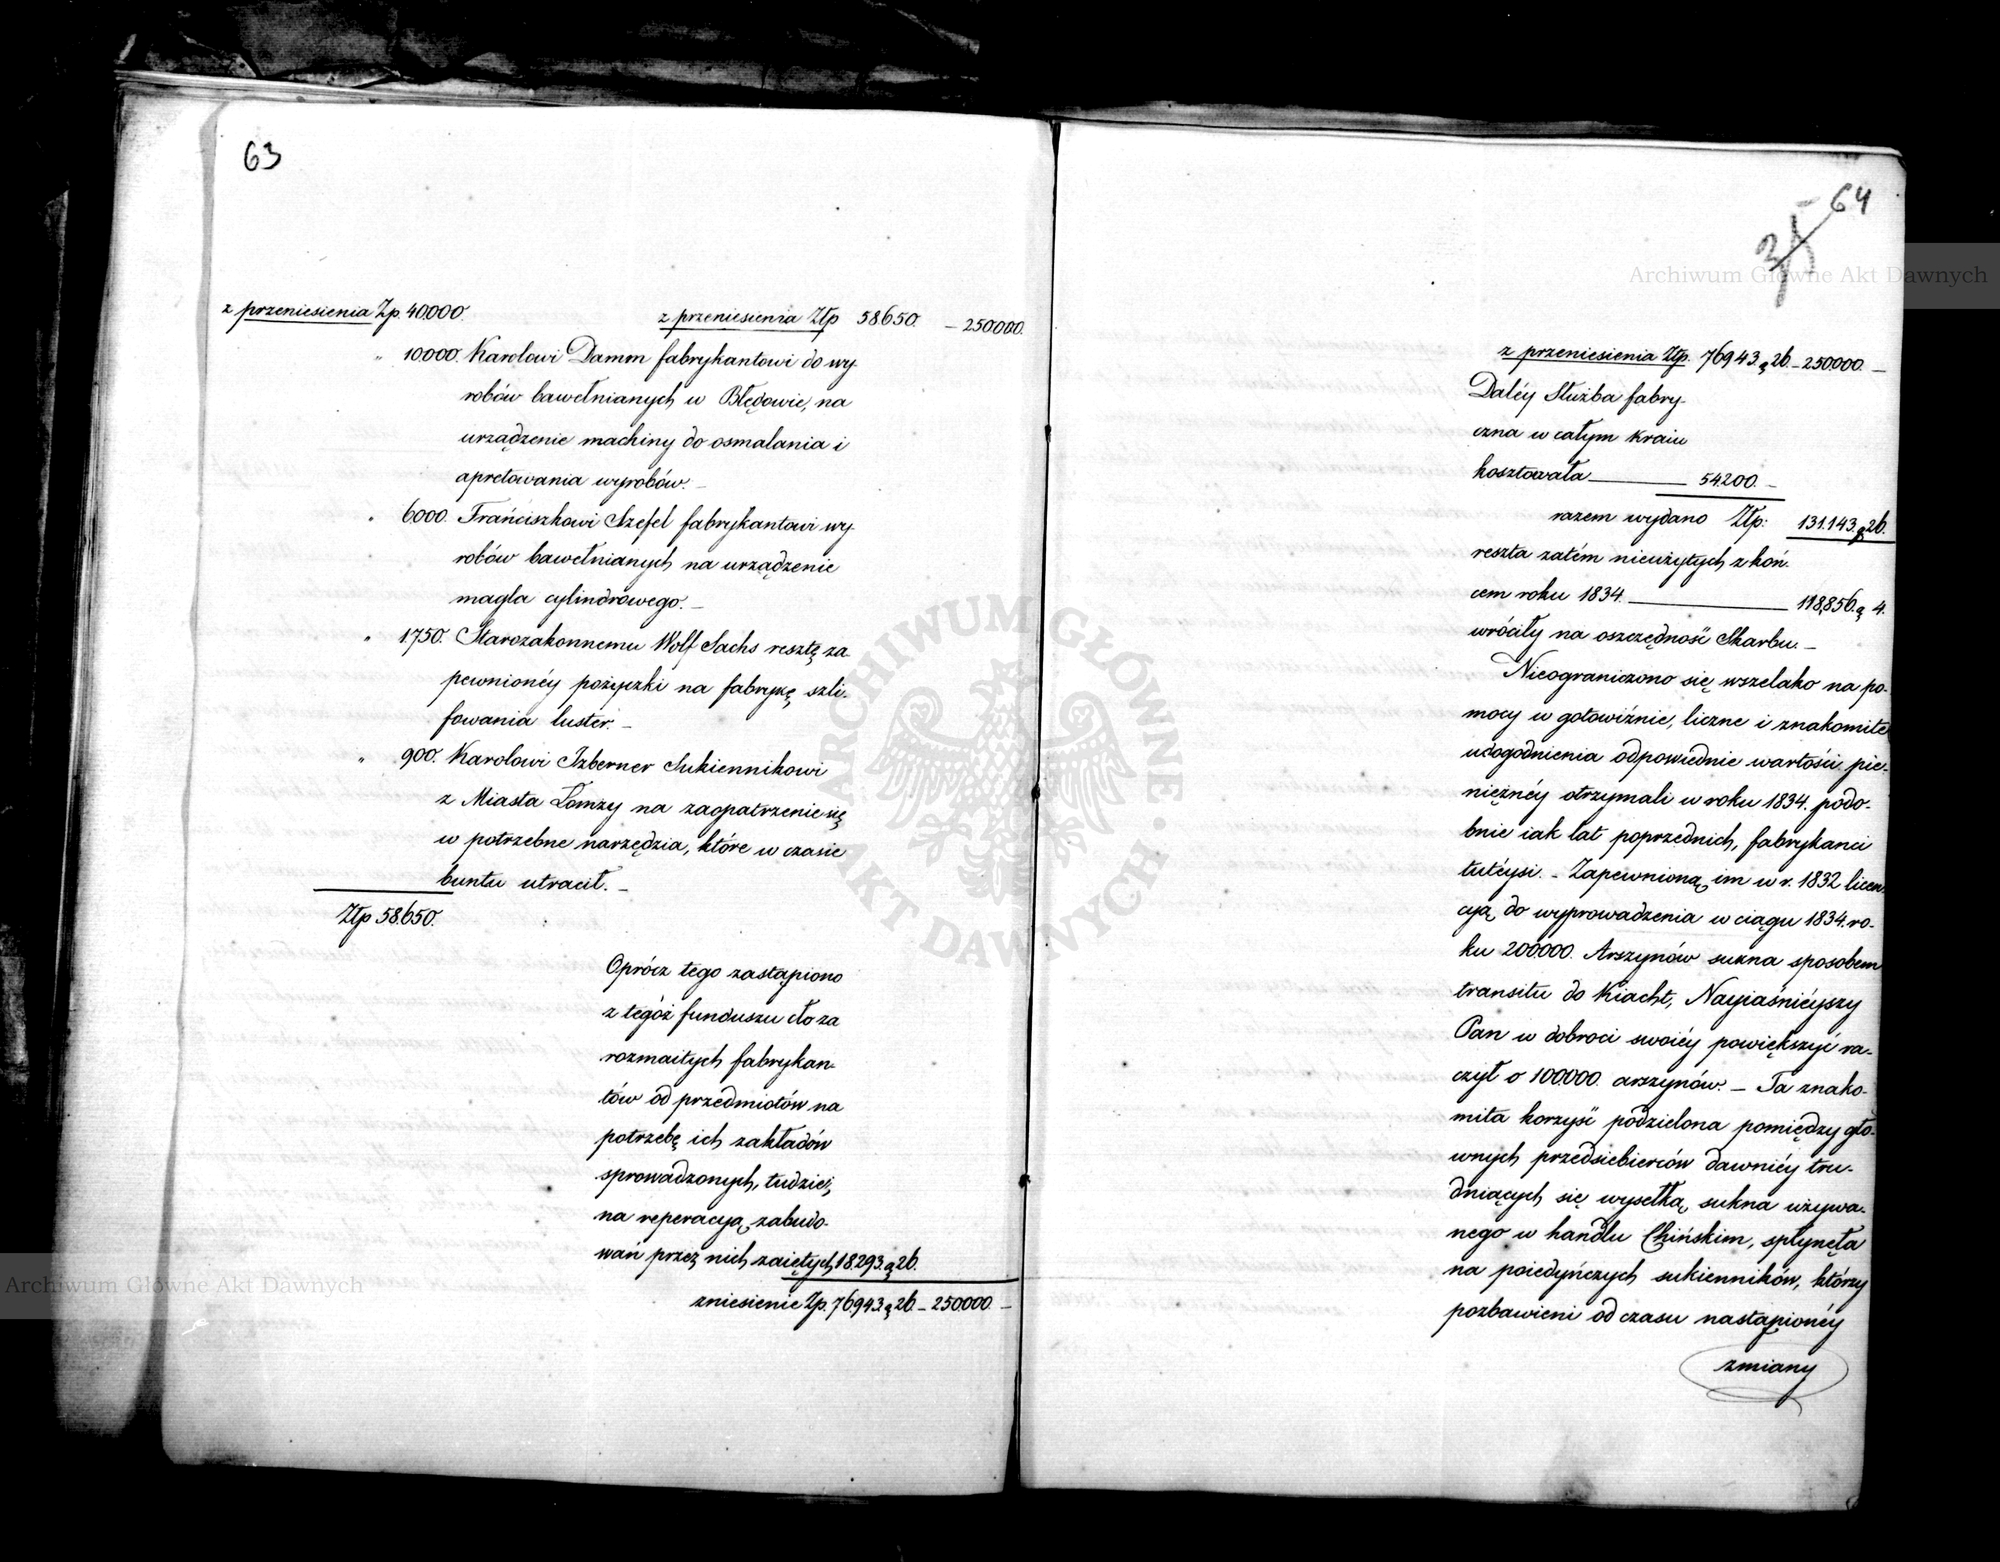 63
z przeniesienia Zp. 40.000.
z przeniesienia Złp 58.650. – 250.000.
„ 10000. Karolowi Damm fabrykantowi do wy-
robów bawełnianych w Błędowie, na
urządzenie machiny do osmalania i
apretowania wyrobów. –
„ 6000. Frańciszkowi Szefel fabrykantowi wy-
robów bawełnianych na urządzenie
magla cylindrowego. –
„ 1.750. Starozakonnemu Wolf Sachs resztę za-
pewnionéy pożyczki na fabrykę szli-
fowania luster. –
„ 900. Karolowi Izberner Sukiennikowi
z Miasta Łomży na zaopatrzenie się
w potrzebne narzędzia, które w czasie
buntu utracił. –
Złp 58.650.
Oprócz tego zastąpiono
z tegóż funduszu cło za
rozmaitych fabrykan-
tów od przedmiotów na
potrzebę ich zakładów
sprowadzonych, tudzież,
na reperacyą zabudo-
wań przez nich zaiętych 18.293. g 26.
zniesienie Zp. 76943. g 26. – 250.000. –
64
35
z przeniesienia Złp. 76943. g 26. – 250.000. –
Daléy Służba fabry-
czna w całym kraiu
kosztowała 54.200. –
razem wydano Złp: 131.143. g 26.
reszta zatém nieużytych z koń-
cem roku 1834. 118,856. g 4.
wróciły na oszczędność Skarbu. –
Nieograniczono się wszelako na po-
mocy w gotowiźnie, liczne i znakomite
udogodnienia odpowiednie wartości pie-
niężnéy otrzymali w roku 1834. podo-
bnie iak lat poprzednich, fabrykanci
tutéysi. – Zapewnioną im w r. 1832 licen-
cyą do wyprowadzenia w ciągu 1834. ro-
ku 200.000. Arszynów sukna sposobem
transitu do Kiacht, Nayiaśnieyszy
Pan w dobroci swoiéy powiększyć ra-
czył o 100000. arszynów. – Ta znako-
mita korzyść podzielona pomiędzy głó-
wnych przedsiebierców dawniéy tru-
dniących się wysełką sukna używa-
nego w handlu Chińskim, spłynęła
na poiedyńczych sukienników, którzy
pozbawieni od czasu nastąpionéy
zmiany
Archiwum Główne Akt Dawnych
Archiwum Główne Akt Dawnych
ARCHIWUM GŁÓWNE AKT DAWNYCH